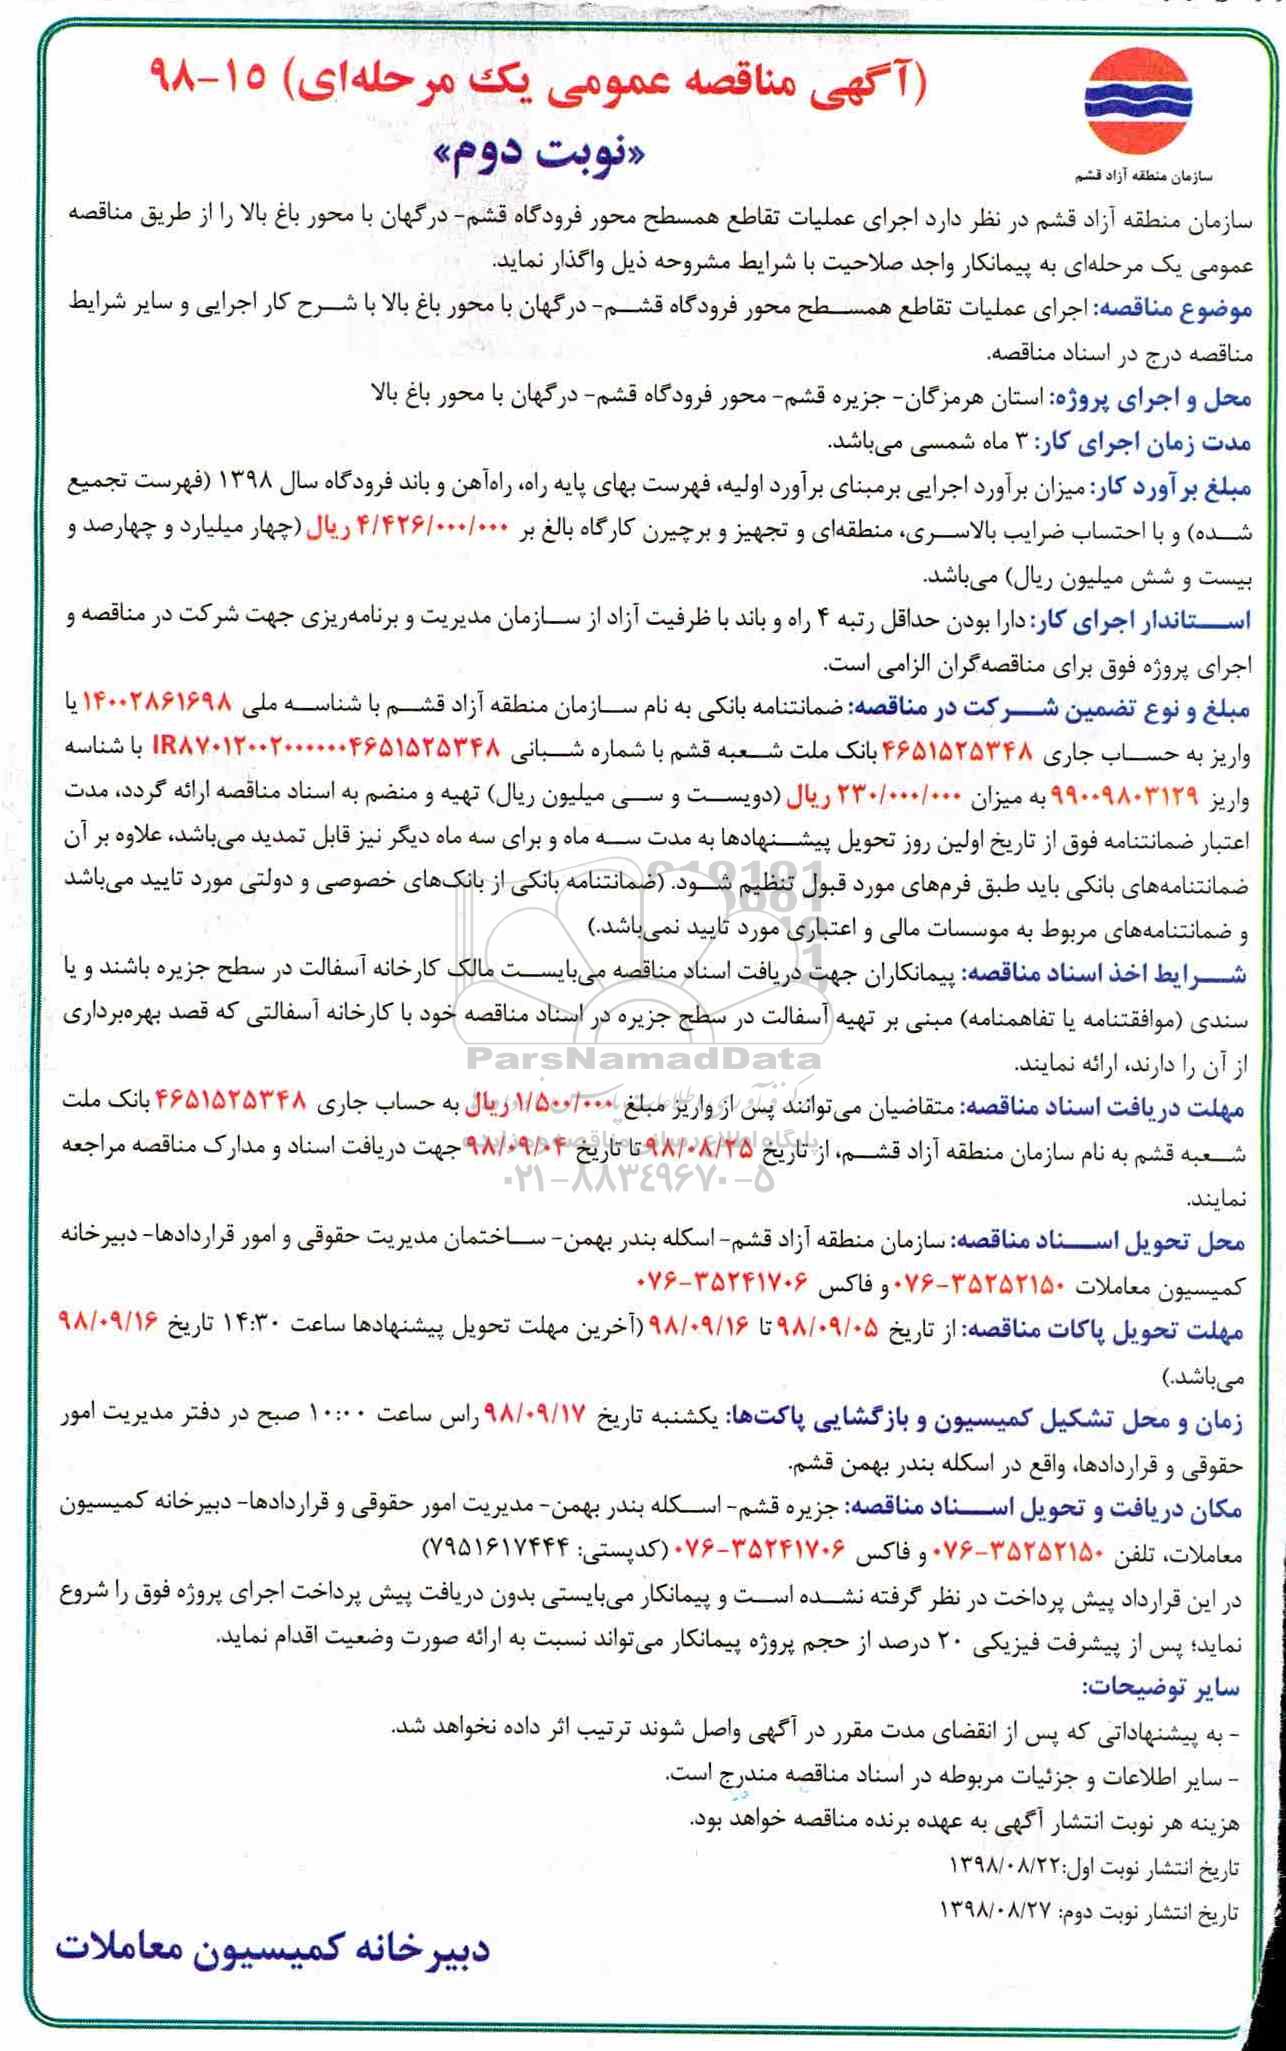 (آگهی مناقصه عمومی یک مرحله‌ای) ۱۵-۹۸
«نوبت دوم»
سازمان منطقه آزاد قشم
سازمان منطقه آزاد قشم در نظر دارد اجرای عملیات تقاطع همسطح محور فرودگاه قشم- درگهان با محور باغ بالا را از طریق مناقصه
عمومی یک مرحله‌ای به پیمانکار واجد صلاحیت با شرایط مشروحه ذیل واگذار نماید.
موضوع مناقصه: اجرای عملیات تقاطع همسطح محور فرودگاه قشم- درگهان با محور باغ بالا با شرح کار اجرایی و سایر شرایط
مناقصه درج در اسناد مناقصه.
محل و اجرای پروژه: استان هرمزگان- جزیره قشم- محور فرودگاه قشم- درگهان با محور باغ بالا
مدت زمان اجرای کار: ۳ ماه شمسی می‌باشد.
مبلغ برآورد کار: میزان برآورد اجرایی برمبنای برآورد اولیه، فهرست بهای پایه راه، راه‌آهن و باند فرودگاه سال ۱۳۹۸ (فهرست تجمیع
شده) و با احتساب ضرایب بالاسری، منطقه‌ای و تجهیز و برچیرن کارگاه بالغ بر ۴/۴۲۶/۰۰۰/۰۰۰ ریال (چهار میلیارد و چهارصد و
بیست و شش میلیون ریال) می‌باشد.
استاندار اجرای کار: دارا بودن حداقل رتبه ۴ راه و باند با ظرفیت آزاد از سازمان مدیریت و برنامه‌ریزی جهت شرکت در مناقصه و
اجرای پروژه فوق برای مناقصه‌گران الزامی است.
مبلغ و نوع تضمین شرکت در مناقصه: ضمانتنامه بانکی به نام سازمان منطقه آزاد قشم با شناسه ملی ۱۴۰۰۲۸۶۱۶۹۸ یا
واریز به حساب جاری ۴۶۵۱۵۲۵۳۴۸ بانک ملت شعبه قشم با شماره شبانی IR۸۷۰۱۲۰۰۲۰۰۰۰۰۰۴۶۵۱۵۲۵۳۴۸ با شناسه
واریز ۹۹۰۰۹۸۰۳۱۲۹ به میزان ۲۳۰/۰۰۰/۰۰۰ ریال (دویست و سی میلیون ریال) تهیه و منضم به اسناد مناقصه ارائه گردد، مدت
اعتبار ضمانتنامه فوق از تاریخ اولین روز تحویل پیشنهادها به مدت سه ماه و برای سه ماه دیگر نیز قابل تمدید می‌باشد، علاوه بر آن
ضمانتنامه‌های بانکی باید طبق فرم‌های مورد قبول تنظیم شود. (ضمانتنامه بانکی از بانک‌های خصوصی و دولتی مورد تایید می‌باشد
و ضمانتنامه‌های مربوط به موسسات مالی و اعتباری مورد تایید نمی‌باشد.)
شرایط اخذ اسناد مناقصه: پیمانکاران جهت دریافت اسناد مناقصه می‌بایست مالک کارخانه آسفالت در سطح جزیره باشند و یا
سندی (موافقتنامه یا تفاهمنامه) مبنی بر تهیه آسفالت در سطح جزیره در اسناد مناقصه خود با کارخانه آسفالتی که قصد بهره‌برداری
از آن را دارند، ارائه نمایند.
ParsNamadData
مهلت دریافت اسناد مناقصه: متقاضیان می‌توانند پس از واریز مبلغ ۱/۵۰۰/۰۰۰ ریال به حساب جاری ۴۶۵۱۵۲۵۳۴۸ بانک ملت
شعبه قشم به نام سازمان منطقه آزاد قشم، از تاریخ ۹۸/۰۸/۲۵ تا تاریخ ۹۸/۰۹/۰۴ جهت دریافت اسناد و مدارک مناقصه مراجعه
نمایند.
۰۲۱-۸۸۳۴۹۶۷۰-۵
محل تحویل اسناد مناقصه: سازمان منطقه آزاد قشم- اسکله بندر بهمن- ساختمان مدیریت حقوقی و امور قراردادها- دبیرخانه
کمیسیون معاملات ۳۵۲۵۲۱۵۰-۰۷۶ و فاکس ۳۵۲۴۱۷۰۶-۰۷۶
مهلت تحویل پاکات مناقصه: از تاریخ ۹۸/۰۹/۰۵ تا ۹۸/۰۹/۱۶ (آخرین مهلت تحویل پیشنهادها ساعت ۱۴:۳۰ تاریخ ۹۸/۰۹/۱۶
می‌باشد.)
زمان و محل تشکیل کمیسیون و بازگشایی پاکت‌ها: یکشنبه تاریخ ۹۸/۰۹/۱۷ راس ساعت ۱۰:۰۰ صبح در دفتر مدیریت امور
حقوقی و قراردادها، واقع در اسکله بندر بهمن قشم.
مکان دریافت و تحویل اسناد مناقصه: جزیره قشم- اسکله بندر بهمن- مدیریت امور حقوقی و قراردادها- دبیرخانه کمیسیون
معاملات، تلفن ۳۵۲۵۲۱۵۰-۰۷۶ و فاکس ۳۵۲۴۱۷۰۶-۰۷۶ (کدپستی: ۷۹۵۱۶۱۷۴۴۴)
در این قرارداد پیش پرداخت در نظر گرفته نشده است و پیمانکار می‌بایستی بدون دریافت پیش پرداخت اجرای پروژه فوق را شروع
نماید؛ پس از پیشرفت فیزیکی ۲۰ درصد از حجم پروژه پیمانکار می‌تواند نسبت به ارائه صورت وضعیت اقدام نماید.
سایر توضیحات:
- به پیشنهاداتی که پس از انقضای مدت مقرر در آگهی واصل شوند ترتیب اثر داده نخواهد شد.
- سایر اطلاعات و جزئیات مربوطه در اسناد مناقصه مندرج است.
هزینه هر نوبت انتشار آگهی به عهده برنده مناقصه خواهد بود.
تاریخ انتشار نوبت اول: ۱۳۹۸/۰۸/۲۲
تاریخ انتشار نوبت دوم: ۱۳۹۸/۰۸/۲۷
دبیرخانه کمیسیون معاملات